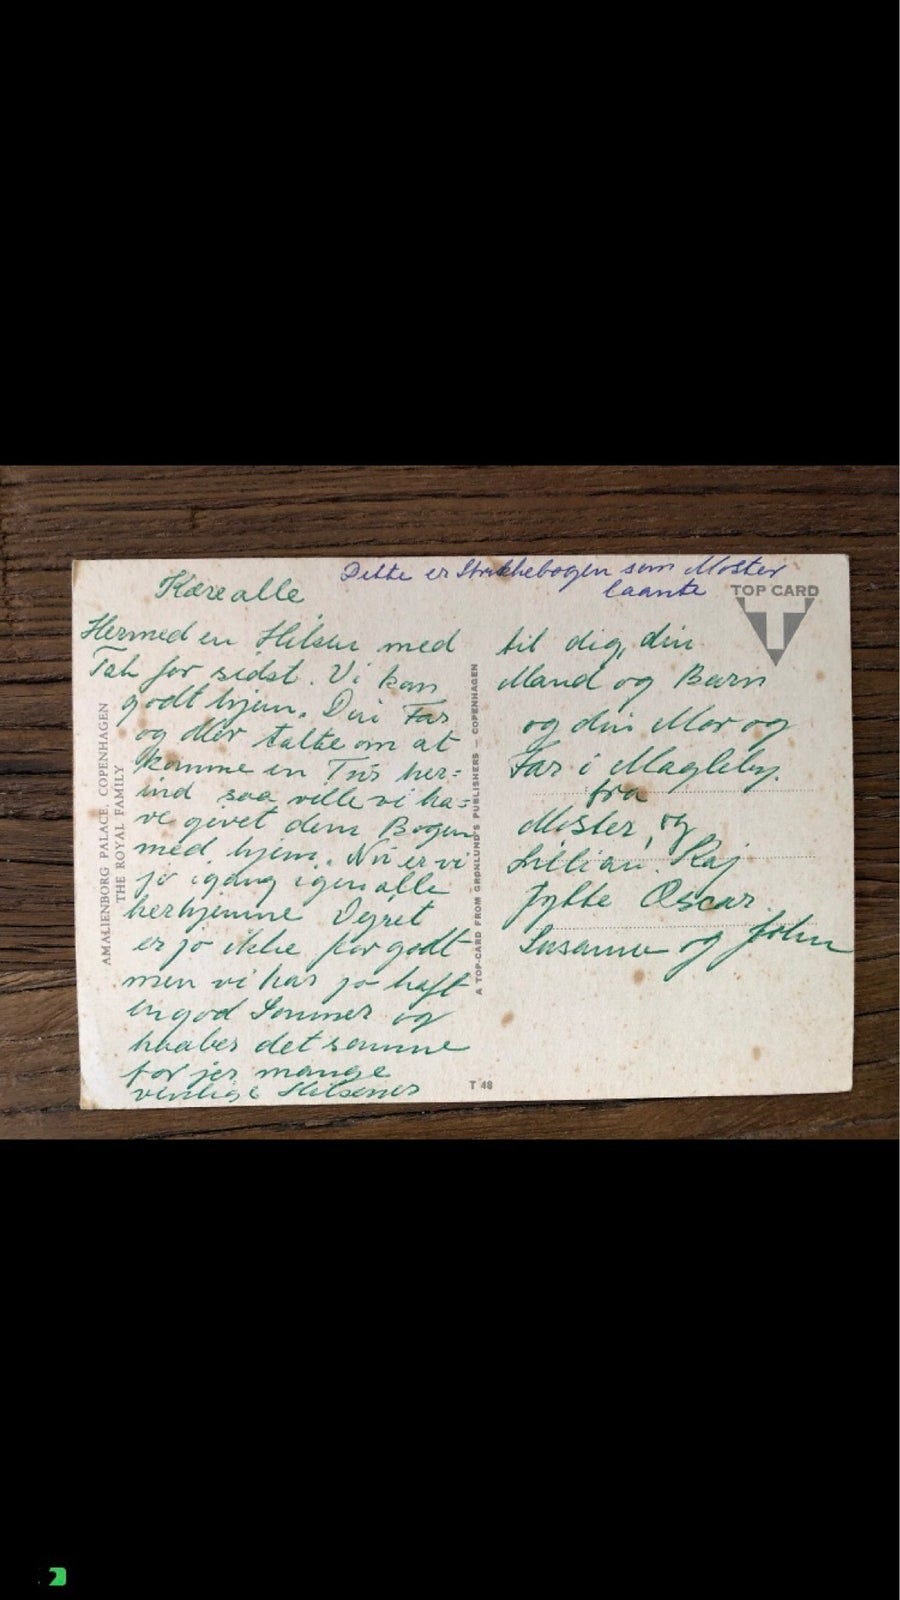 Dette er Strikkebogen som Moster
laante
TOP CARD
Kære alle
Hermed en Hilsen med
Tak for sidst. Vi kom
godt hjem. Din Far
og Mor talte om at
komme en Tur her=
ind saa ville vi ha=
ve givet dem Bogen
med hjem. Nu er vi
jo igang igen alle
herhjemme Vejret
er jo ikke for godt
men vi har jo haft
en god Sommer og
haaber det samme
for jer mange
venlige Hilsener
til dig, din
Mand og Børn
og din Mor og
Far i Magleby.
fra
Moster og
Lillian. Kaj
Jytte Oscar
Susanne og John
AMALIENBORG PALACE, COPENHAGEN
THE ROYAL FAMILY
A TOP-CARD FROM GRØNLUND'S PUBLISHERS — COPENHAGEN
T 48